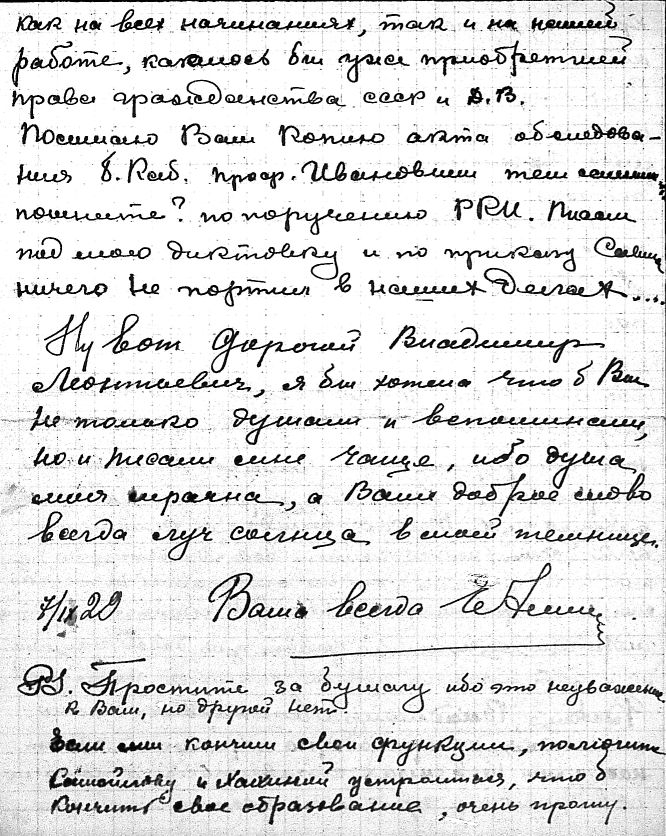 как на всех начинаниях, так и на нашей
работе, казалось бы уже приобретшей
права гражданства СССР и Д.В.
Посылаю Вам копию акта обследова-
ния б. Каб. проф. Ивановым тем самым,
помните? по поручению РКИ. Писал
под мою диктовку и по приказу
ничего не портил в наших делах....
Ну вот дорогой Владимир
Леонтьевич, я бы хотела что б Вы
не только думали и вспоминали,
но и писали мне чаще, ибо душа
моя мрачна, а Ваше доброе слово
всегда луч солнца в моей темнице.
Ваша всегда
PS. Простите за бумагу ибо это неуважение
к Вам, но другой нет.
Если мы кончим свои функции, помогите
Самойлову и устроиться, что б
кончить свое образование, очень прошу.